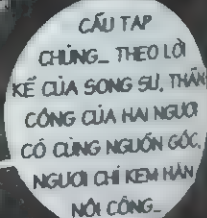 CẤU TẠP
CHỦNG_ THEO LỜI
KỂ CỦA SONG SƯ, THẦN
CÔNG CỦA HAI NGƯƠI
CÓ CÙNG NGUỒN GỐC,
NGƯƠI CHỈ KEM HẮN
NỘI CÔNG_